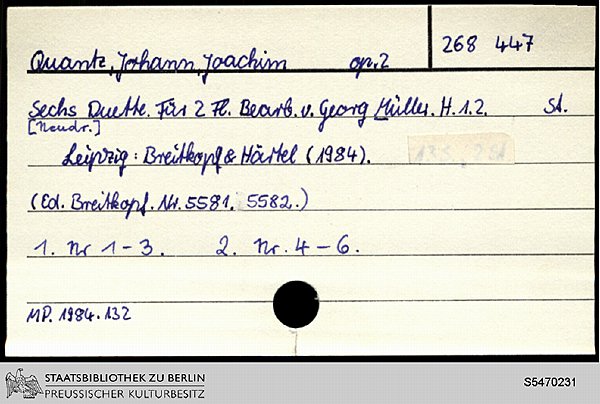 Quantz, Johann Joachim op. 2
268 447
Sechs Duette. Für 2 Fl. Bearb. v. Georg Müller. H. 1.2. St.
[Neudr.]
Leipzig: Breitkopf & Härtel (1984).
(Ed. Breitkopf. Nr. 5581. 5582.)
1. Nr 1-3. 2. Nr. 4-6.
MP. 1984.132
STAATSBIBLIOTHEK ZU BERLIN
PREUSSISCHER KULTURBESITZ
S5470231